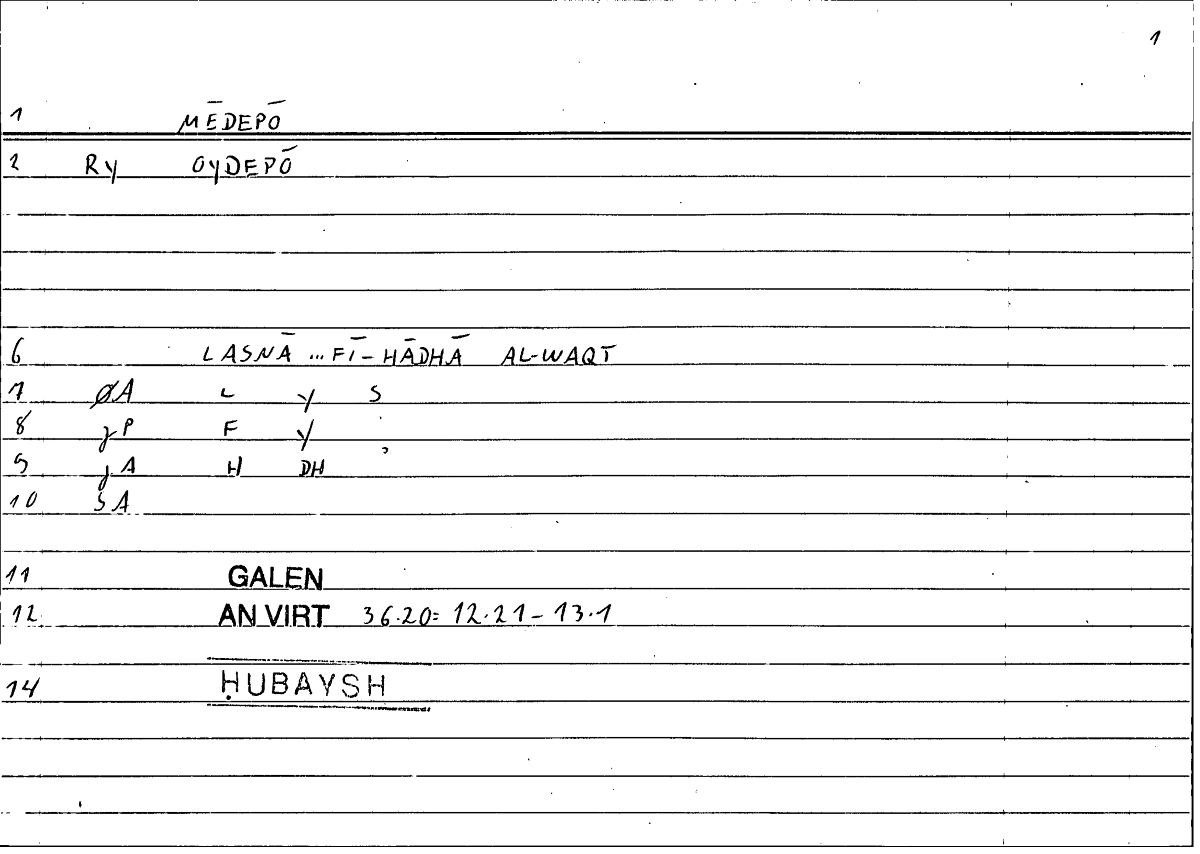 1
1 MĒDEPŌ
2 Ry OyDEPŌ
6 LASNĀ ... FĪ-HĀDHĀ AL-WAQT
7 ØA L y S
8 zP F y
9 jA H DH ʾ
10 SA
11 GALEN
12 AN VIRT 36.20= 12.21-13.1
14 ḤUBAYSH